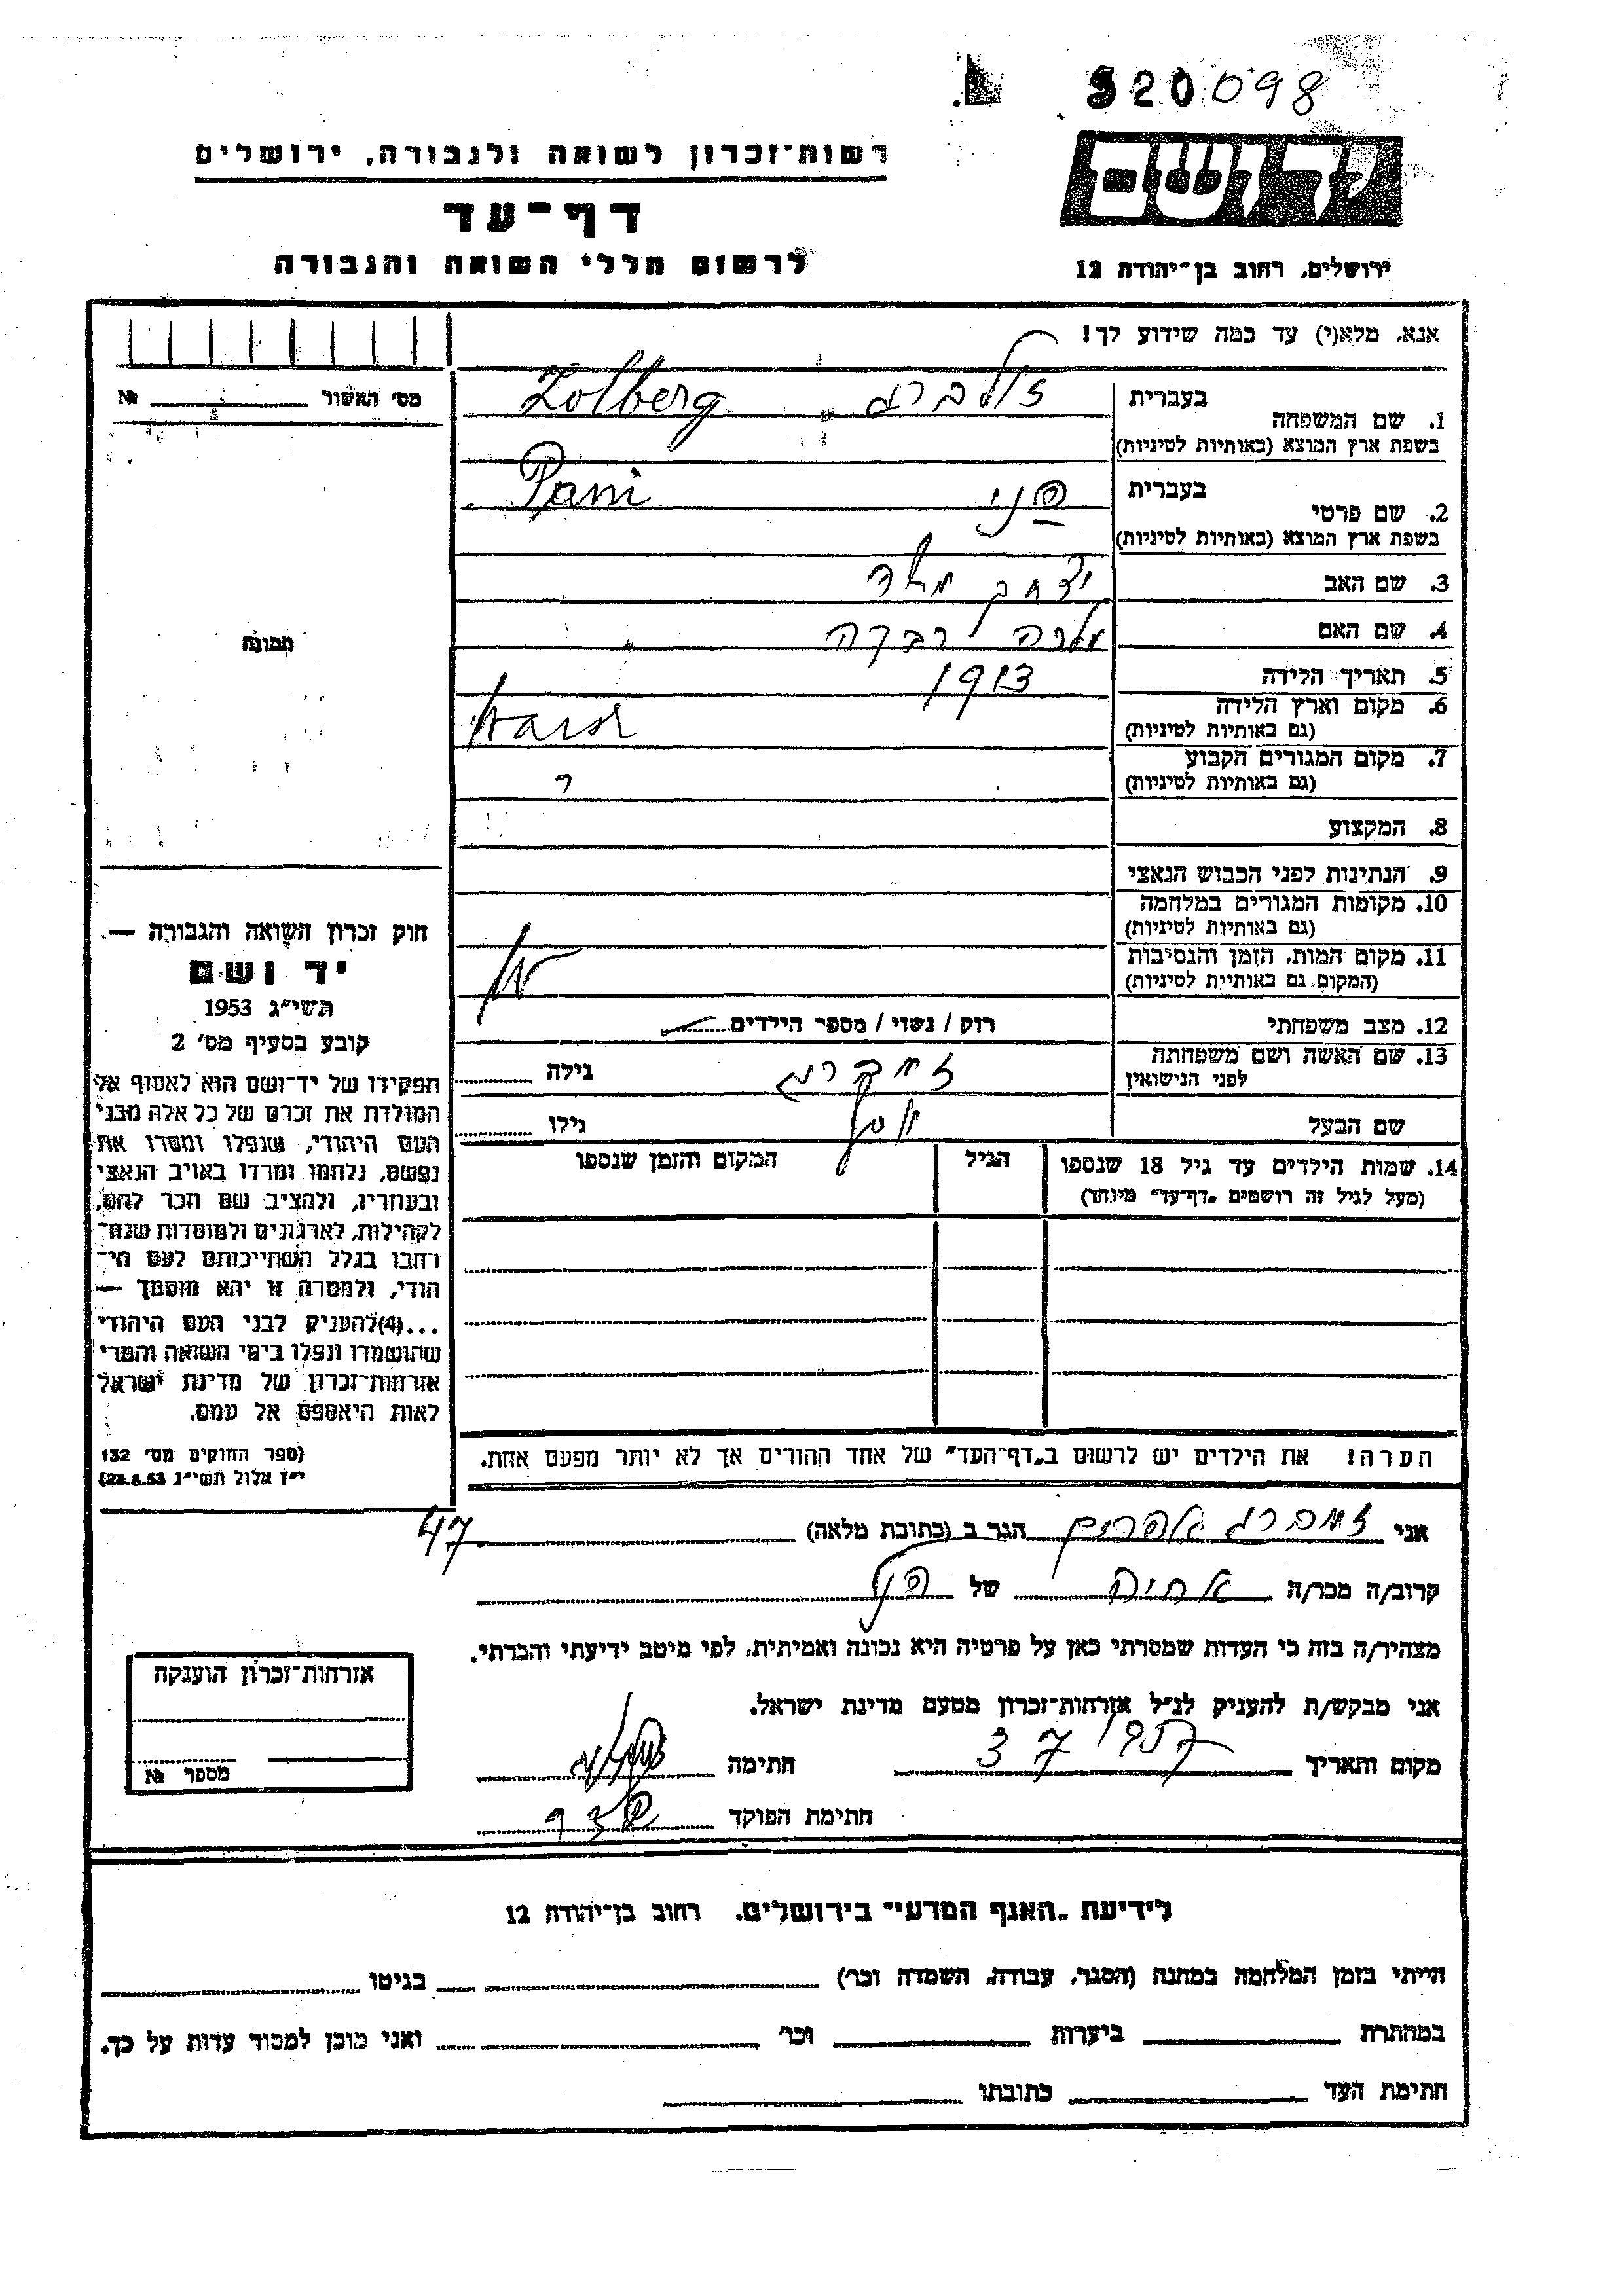 320098
רשות־זכרון לשואה ולגבורה, ירושלים
דף־עד
לרשום חללי השואה והגבורה
יד ושם
ירושלים, רחוב בן־יהודה 12
אנא, מלא(י) עד כמה שידוע לך!
מס׳ האשור №
תמונה
1. שם המשפחה
בעברית זולברג Zolberg
בשפת ארץ המוצא (באותיות לטיניות)
2. שם פרטי
בעברית פני Pani
בשפת ארץ המוצא (באותיות לטיניות)
3. שם האב יצחק
4. שם האם רבקה
5. תאריך הלידה 1913
6. מקום וארץ הלידה
(גם באותיות לטיניות)
7. מקום המגורים הקבוע
(גם באותיות לטיניות)
8. המקצוע
9. הנתינות לפני הכבוש הנאצי
10. מקומות המגורים במלחמה
(גם באותיות לטיניות)
11. מקום המות, הזמן והנסיבות
(המקום גם באותיות לטיניות)
12. מצב משפחתי רוק / נשוי / מספר הילדים
13. שם האשה ושם משפחתה
לפני הנישואין גילה
שם הבעל גילו
14. שמות הילדים עד גיל 18 שנספו הגיל המקום והזמן שנספו
(מעל לגיל זה רושמים „דף־עד״ מיוחד)
הערה! את הילדים יש לרשום ב„דף־העד״ של אחד ההורים אך לא יותר מפעם אחת.
חוק זכרון השואה והגבורה —
יד ושם
תשי״ג 1953
קובע בסעיף מס׳ 2
תפקידו של יד־ושם הוא לאסוף אל
המולדת את זכרם של כל אלה מבני
העם היהודי, שנפלו ומסרו את
נפשם, נלחמו ומרדו באויב הנאצי
ובעוזריו, ולהציב שם וזכר להם,
לקהילות, לארגונים ולמוסדות שנח־
רבו בגלל השתייכותם לעם הי־
הודי, ולמטרה זו יהא מוסמך —
...(4)להעניק לבני העם היהודי
שהושמדו ונפלו בימי השואה והמרי
אזרחות־זכרון של מדינת ישראל
לאות היאספם אל עמם.
(ספר החוקים מס׳ 132
י״ז אלול תשי״ג 28.8.53)
אני זולברג אפרים הגר ב (כתובת מלאה) 47
קרוב/ה מכר/ה של פני
מצהיר/ה בזה כי העדות שמסרתי כאן על פרטיה היא נכונה ואמיתית, לפי מיטב ידיעתי והכרתי.
אני מבקש/ת להעניק לנ״ל אזרחות־זכרון מטעם מדינת ישראל.
מקום ותאריך 3 7 חתימה
חתימת הפוקד
אזרחות־זכרון הוענקה
מספר №
לידיעת „האגף המדעי״ בירושלים, רחוב בן־יהודה 12
הייתי בזמן המלחמה במחנה (הסגר, עבודה, השמדה וכר׳) בגיטו
במחתרת ביערות וכר׳ ואני מוכן למסור עדות על כך.
חתימת העד כתובתו